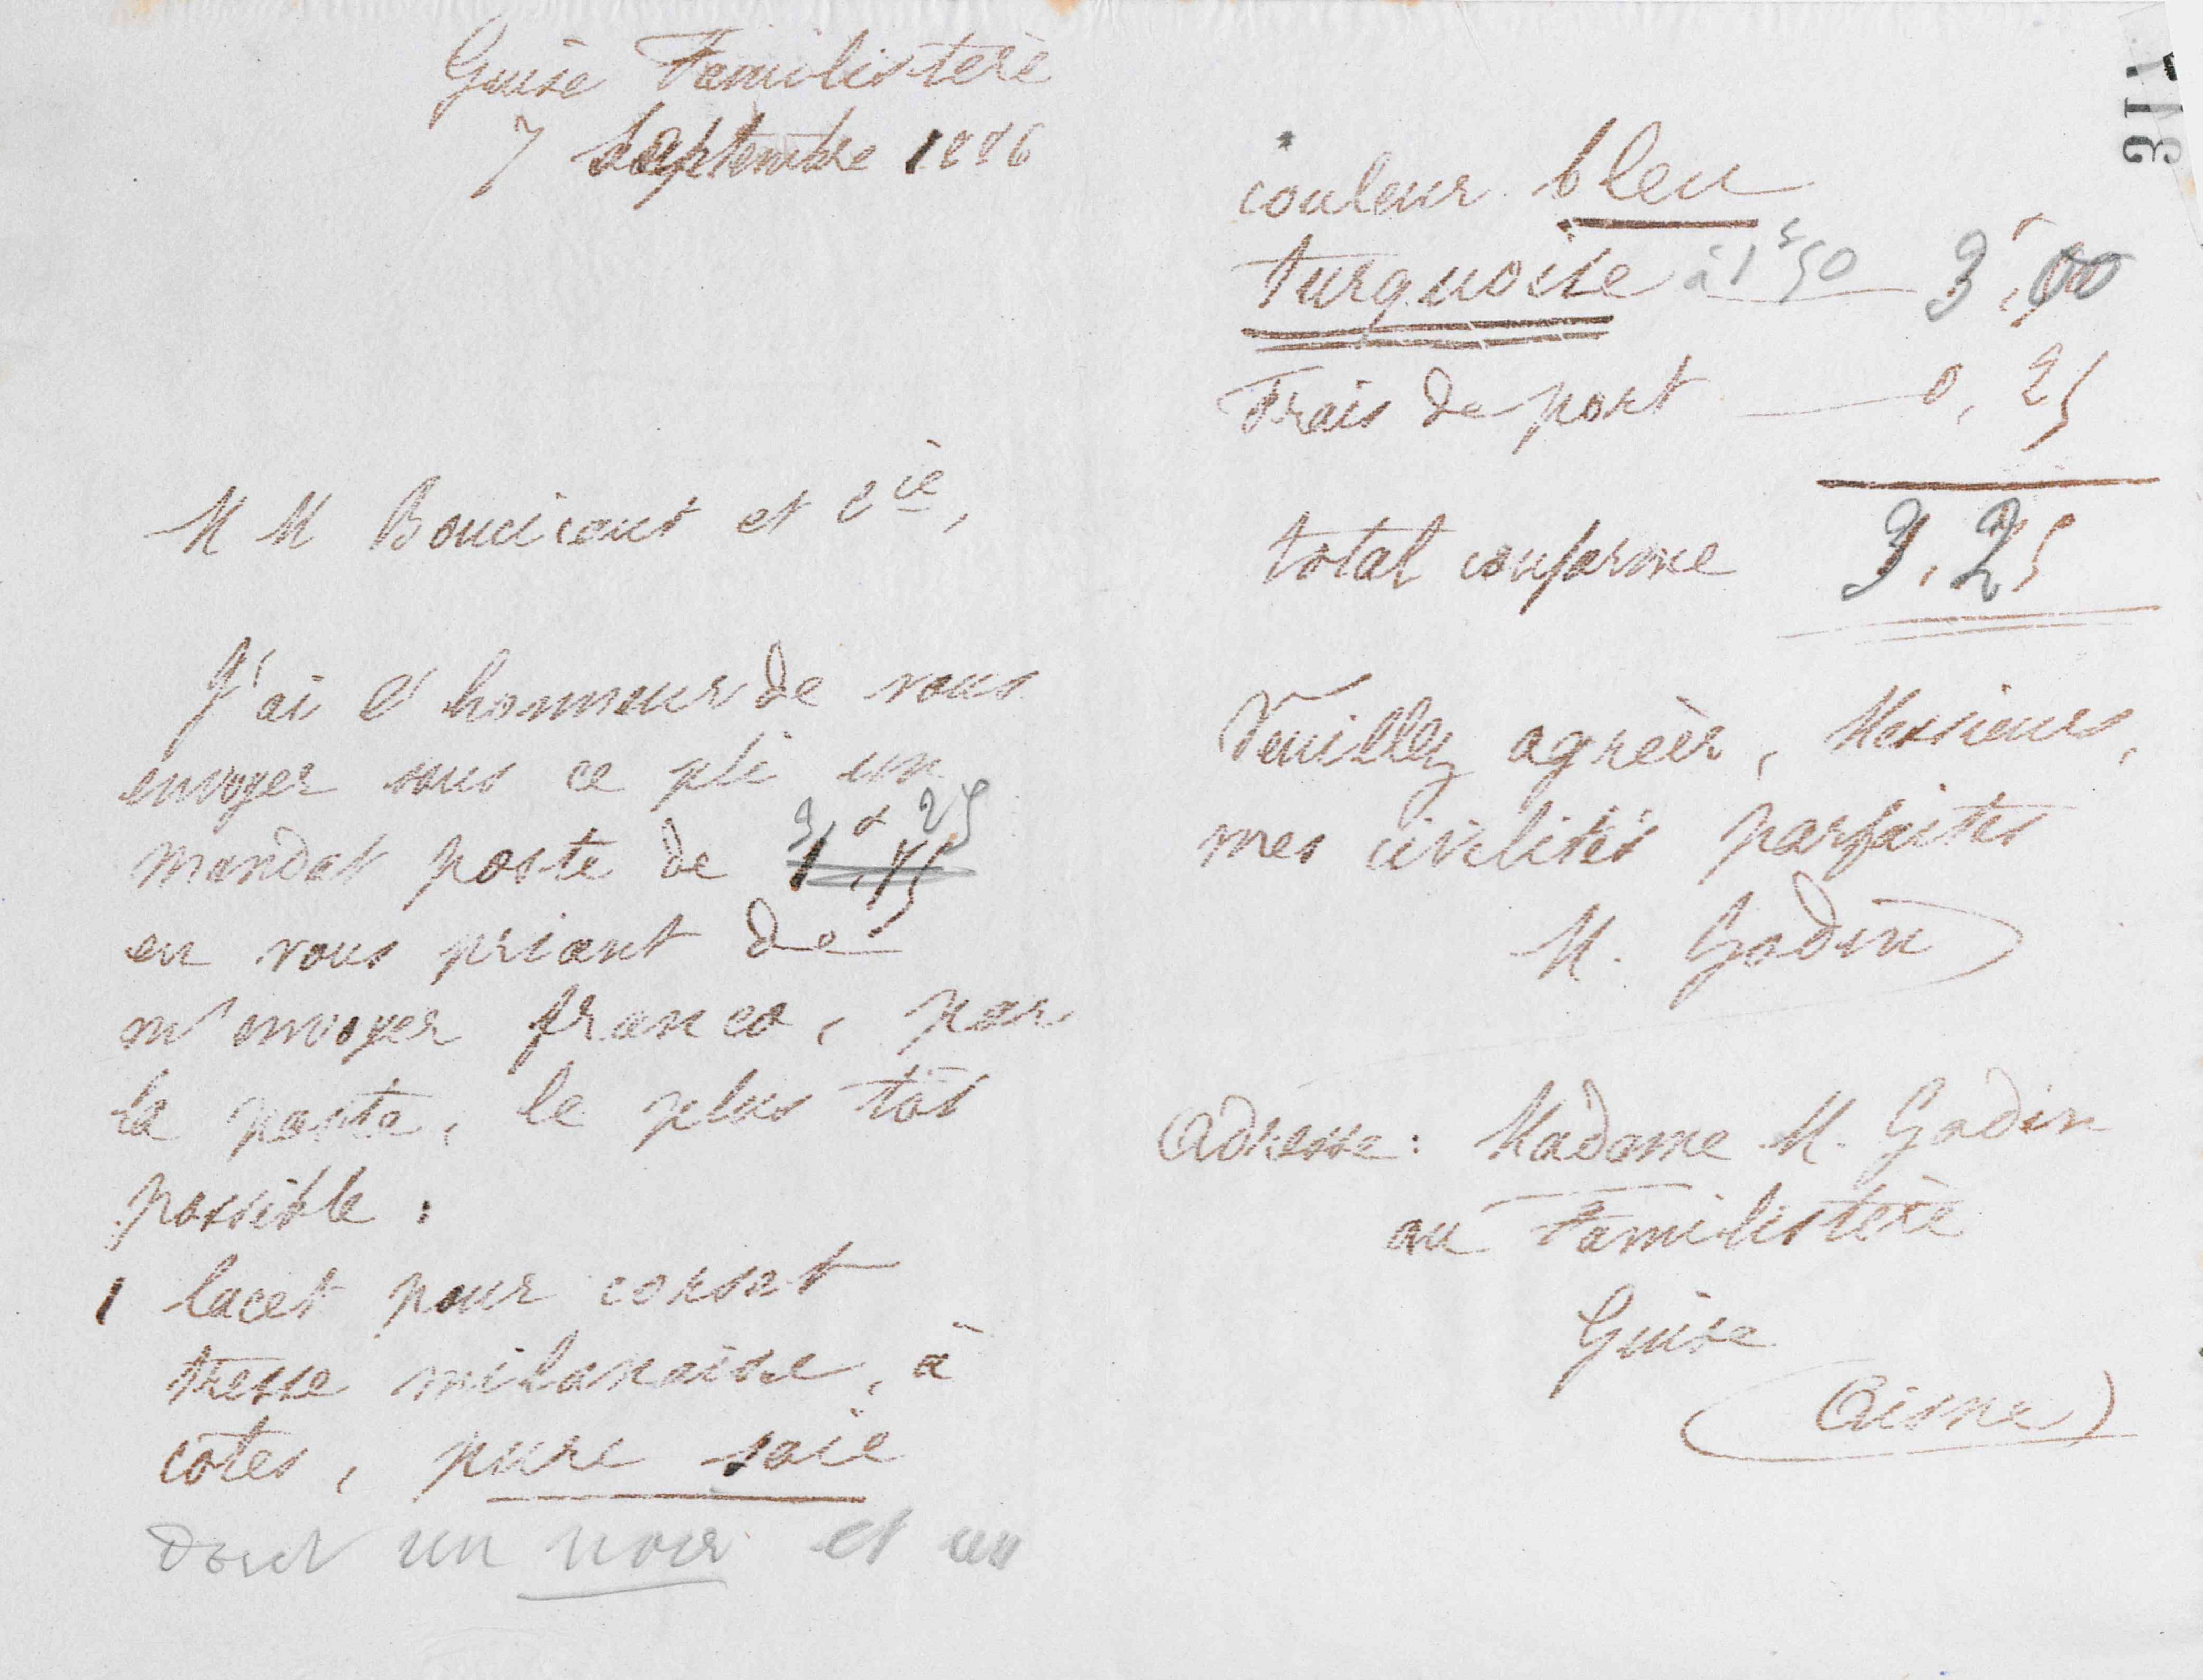 Guise Familistère
7 Septembre 1896
MM Boucicaut et Cie,
J'ai l'honneur de vous
envoyer sous ce pli un
mandat poste de 3f 25
en vous priant de
m'envoyer franco, par
la poste, le plus tôt
possible :
1 lacet pour corset
tresse milanaise, à
côtes, pure soie
dont un noir et un
couleur bleu
turquoise à 1f50 3f,00
Frais de port 0,25
total conforme 3,25
Veuillez agréer, Messieurs,
mes civilités parfaites
M. Godin
Adresse : Madame M. Godin
au Familistère
Guise
(Aisne)